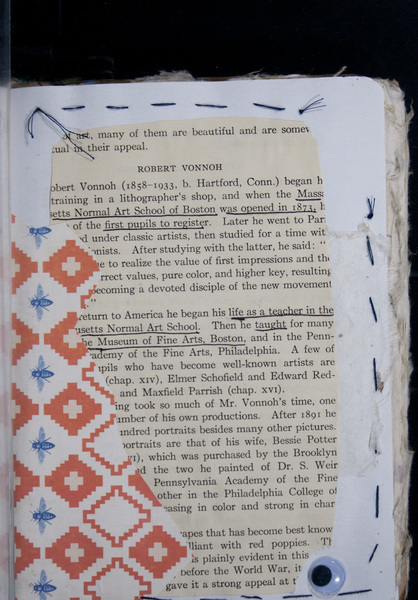 art, many of them are beautiful and are somew
tual in their appeal.
ROBERT VONNOH
obert Vonnoh (1858–1933, b. Hartford, Conn.) began h
training in a lithographer's shop, and when the Massa
setts Normal Art School of Boston was opened in 1873, h
of the first pupils to register. Later he went to Pari
d under classic artists, then studied for a time wit
onists. After studying with the latter, he said: "
e to realize the value of first impressions and the
rrect values, pure color, and higher key, resulting
ecoming a devoted disciple of the new movement
."
return to America he began his life as a teacher in the
usetts Normal Art School. Then he taught for many
he Museum of Fine Arts, Boston, and in the Penn-
cademy of the Fine Arts, Philadelphia. A few of
upils who have become well-known artists are
(chap. XIV), Elmer Schofield and Edward Red-
and Maxfield Parrish (chap. XVI).
ing took so much of Mr. Vonnoh's time, one
umber of his own productions. After 1891 he
undred portraits besides many other pictures.
portraits are that of his wife, Bessie Potter
VI), which was purchased by the Brooklyn
d the two he painted of Dr. S. Weir
Pennsylvania Academy of the Fine
other in the Philadelphia College of
easing in color and strong in char
capes that has become best know
lliant with red poppies. Th
is plainly evident in this
before the World War, it
gave it a strong appeal at t